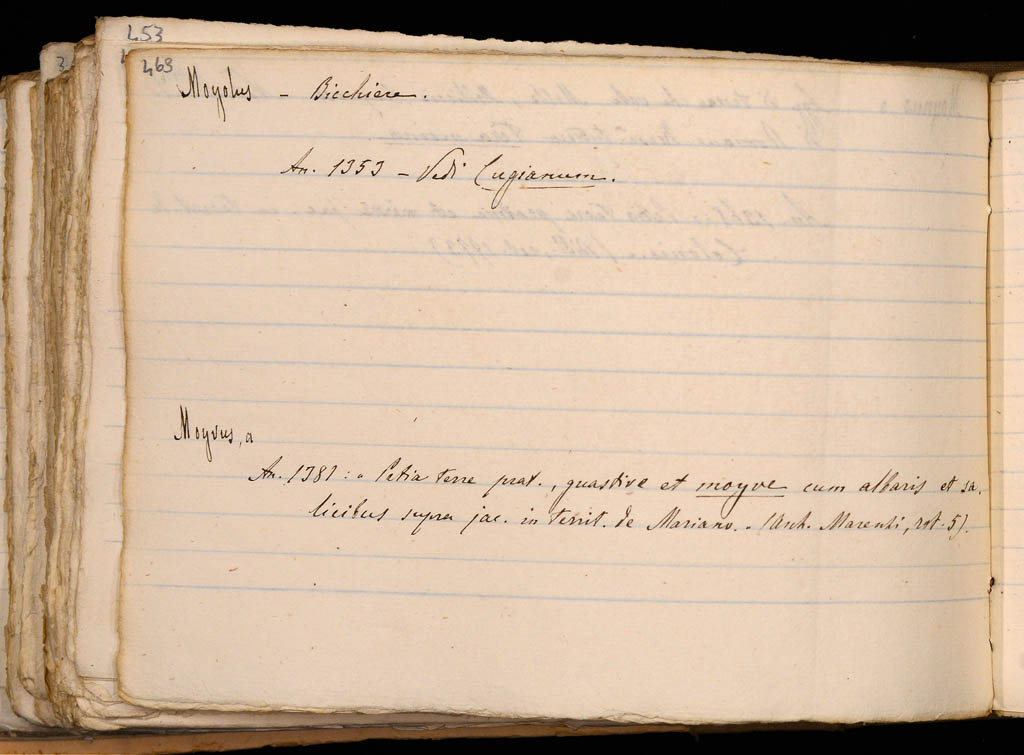 453
463
Moyolus - Bicchiere.
An. 1353 - Vedi Cugianum.
Moyvus, a
An. 1381: " Petia terre prat., guastive et moyve cum albaris et sa-
licibus supra jac. in territ. de Mariano. " (Arch. Marenti, rot. 5).